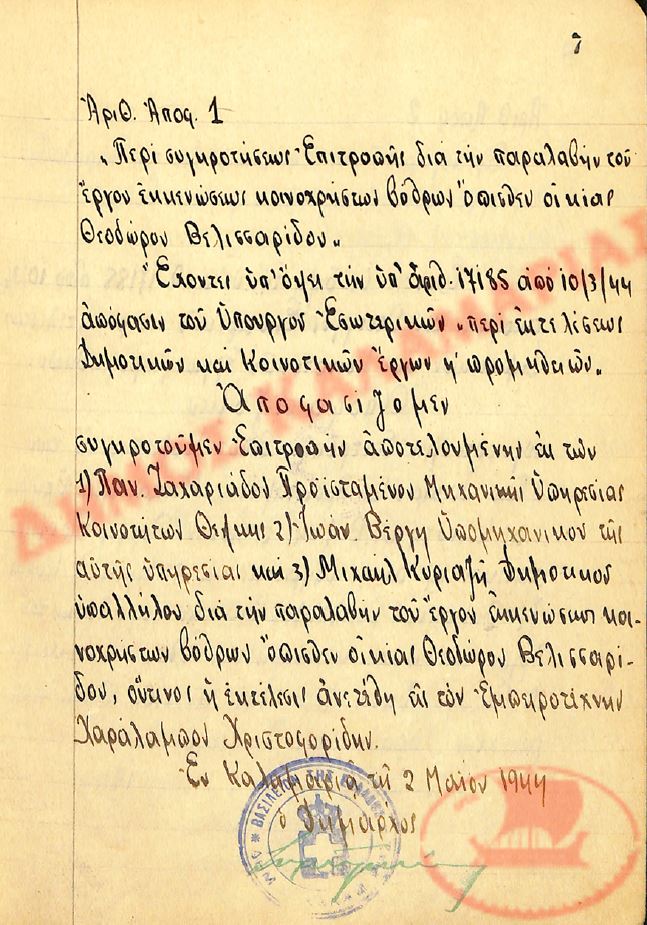 7
Ἀριθ. Ἀποφ. 1
„Περὶ συγκροτήσεως Ἐπιτροπῆς διὰ τὴν παραλαβὴν τοῦ
ἔργου ἐκκενώσεως κοινοχρήστων βόθρων ὄπισθεν οἰκίας
Θεοδώρου Βελισσαρίδου„
Ἔχοντες ὑπ' ὄψει τὴν ὑπ' ἀριθ. 17185 ἀπὸ 10/3/44
ἀπόφασιν τοῦ Ὑπουργοῦ Ἐσωτερικῶν „περὶ ἐκτελέσεως
Δημοτικῶν καὶ Κοινοτικῶν ἔργων ἢ προμηθειῶν„
Ἀποφασίζομεν
συγκροτοῦμεν Ἐπιτροπὴν ἀποτελουμένην ἐκ τῶν
1) Παν. Ζαχαριάδου Προϊσταμένου Μηχανικῆς Ὑπηρεσίας
Κοινοτήτων Θεσ/κης 2) Ἰωάν. Βέργη Ὑπομηχανικοῦ τῆς
αὐτῆς ὑπηρεσίας καὶ 3) Μιχαὴλ Κυριαζῆ Δημοτικοῦ
ὑπαλλήλου διὰ τὴν παραλαβὴν τοῦ ἔργου ἐκκενώσεως κοι-
νοχρήστων βόθρων ὄπισθεν οἰκίας Θεοδώρου Βελισσαρί-
δου, οὗτινος ἡ ἐκτέλεσις ἀνετέθη εἰς τὸν Ἐμπειροτέχνην
Χαράλαμπον Χριστοφορίδην.
Ἐν Καλαμαριᾷ τῇ 2 Μαΐου 1944
ὁ Δήμαρχος
ΒΑΣΙΛΕΙΟΝ ΤΗΣ ΕΛΛΑΔΟΣ
ΔΗΜΟΣ ΚΑΛΑΜΑΡΙΑΣ